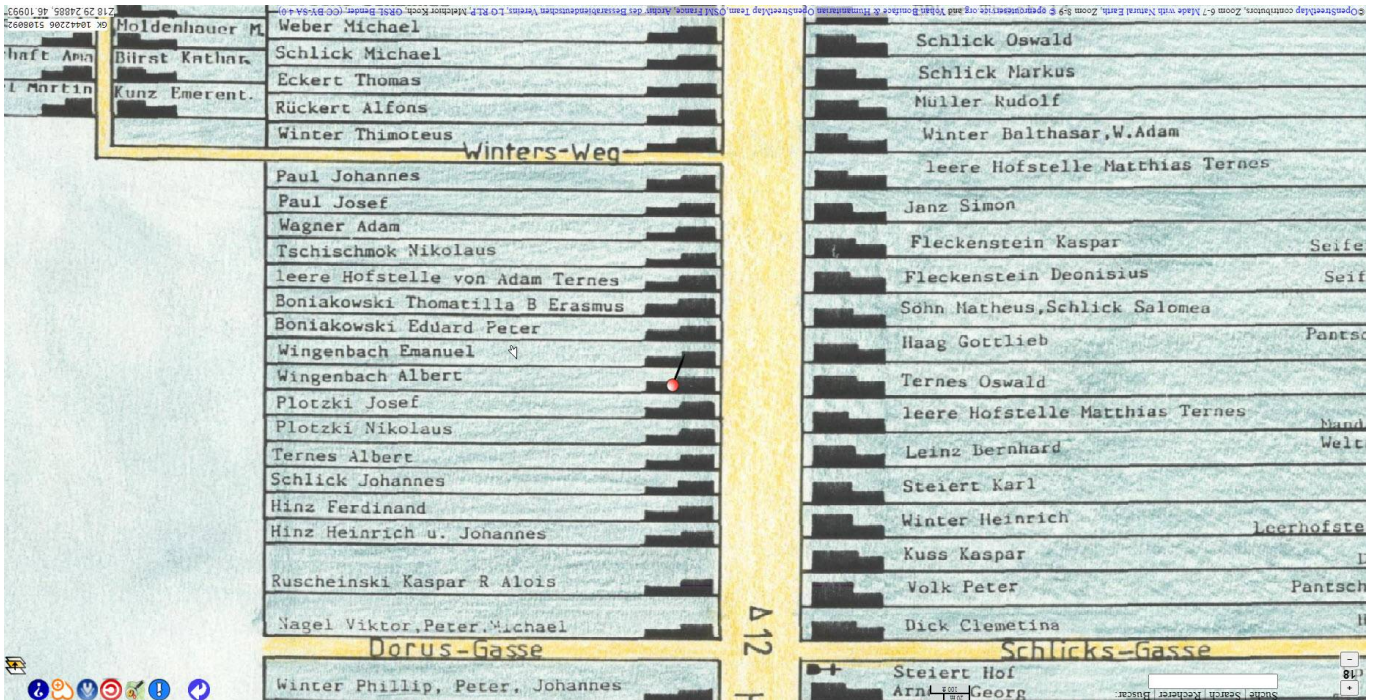 ©OpenStreetMap contributors, Zoom 6-7 Made with Natural Earth, Zoom 8-9 © openrouteservice.org and Yohan Boniface & Humanitarian OpenStreetMap Team, OSM France, Archiv des Bessarabiendeutschen Vereins, LO RLP, Melchior Koch, GRSI, Bender, (CC BY-SA 4.0)
Moldenhauer M
Bilrst Kathar.
Kunz Emerent.
Weber Michael
Schlick Michael
Eckert Thomas
Rückert Alfons
Winter Thimoteus
Winters-Weg
Paul Johannes
Paul Josef
Wagner Adam
Tschischmok Nikolaus
leere Hofstelle von Adam Ternes
Boniakowski Thomatilla B Erasmus
Boniakowski Eduard Peter
Wingenbach Emanuel
Wingenbach Albert
Plotzki Josef
Plotzki Nikolaus
Ternes Albert
Schlick Johannes
Hinz Ferdinand
Hinz Heinrich u. Johannes
Ruscheinski Kaspar R Alois
Nagel Viktor,Peter,Michael
Dorus-Gasse
Winter Phillip, Peter, Johannes
A 12
Schlick Oswald
Schlick Markus
Müller Rudolf
Winter Balthasar,W.Adam
leere Hofstelle Matthias Ternes
Janz Simon
Fleckenstein Kaspar
Seife
Fleckenstein Deonisius
Seif
Sohn Matheus,Schlick Salomea
Haag Gottlieb
Pantsc
Ternes Oswald
leere Hofstelle Matthias Ternes
Mand
Leinz Bernhard
Welt
Steiert Karl
Winter Heinrich
Leerhofste
Kuss Kaspar
Volk Peter
Pantsch
Dick Clemetina
Schlicks-Gasse
Steiert Hof
Georg
18
Suche Search Recherer Buscar: